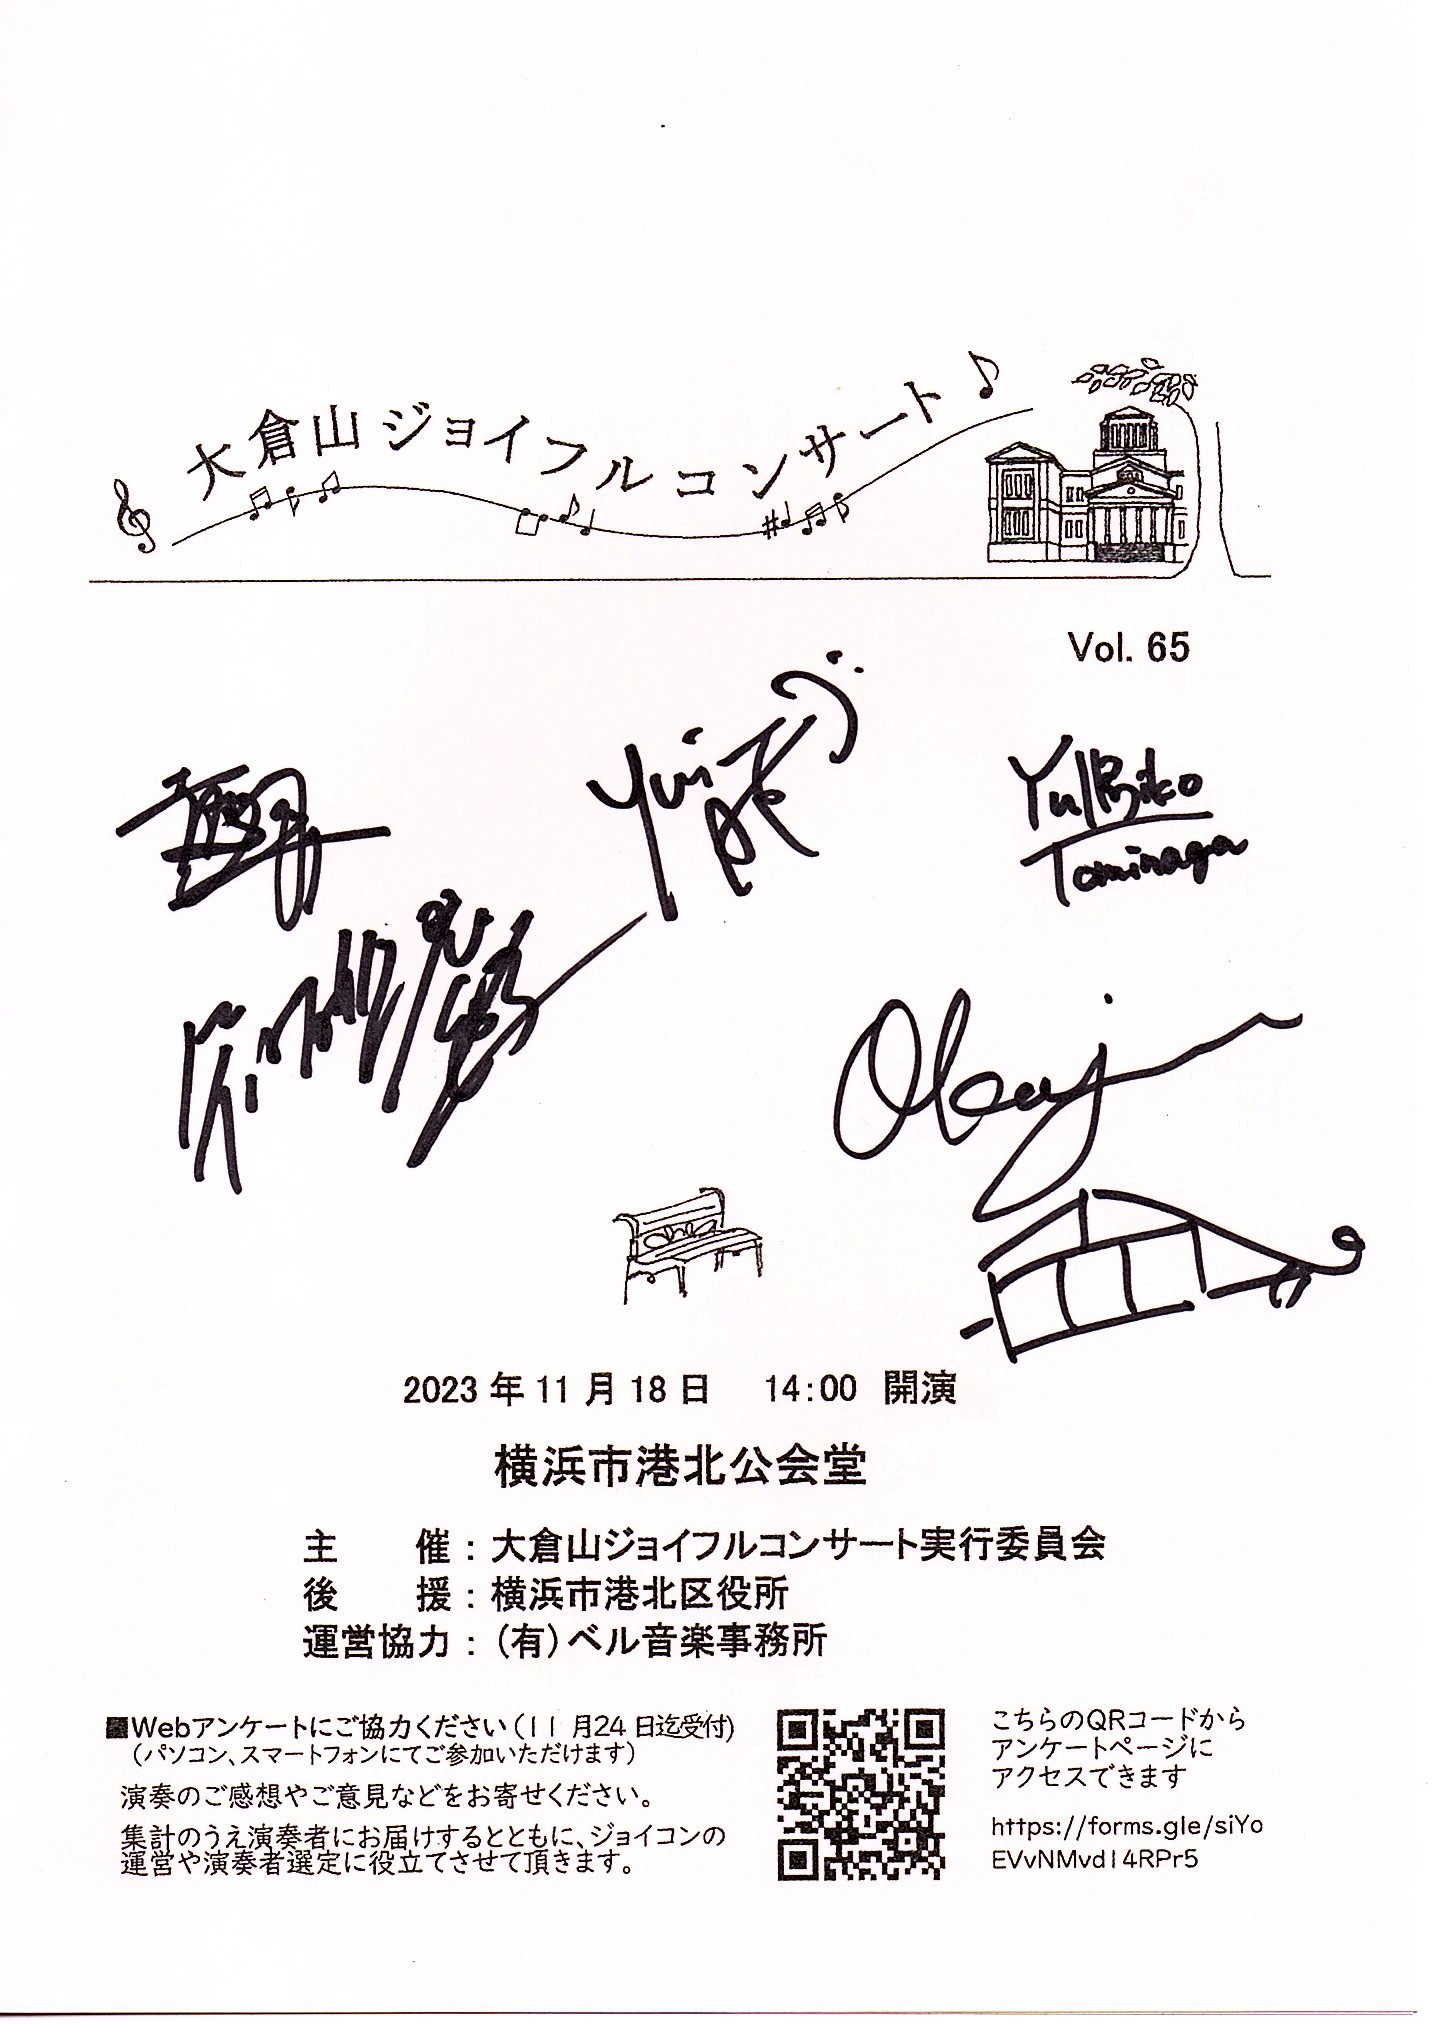 大倉山ジョイフルコンサート♪
Vol. 65
Yui
Yuhiko
Tominaga
2023年11月18日 14:00 開演
横浜市港北公会堂
主 催：大倉山ジョイフルコンサート実行委員会
後 援：横浜市港北区役所
運営協力：(有)ベル音楽事務所
■Webアンケートにご協力ください(11月24日迄受付)
(パソコン、スマートフォンにてご参加いただけます)
演奏のご感想やご意見などをお寄せください。
集計のうえ演奏者にお届けするとともに、ジョイコンの
運営や演奏者選定に役立てさせて頂きます。
こちらのQRコードから
アンケートページに
アクセスできます
https://forms.gle/siYo
EVvNMvd14RPr5